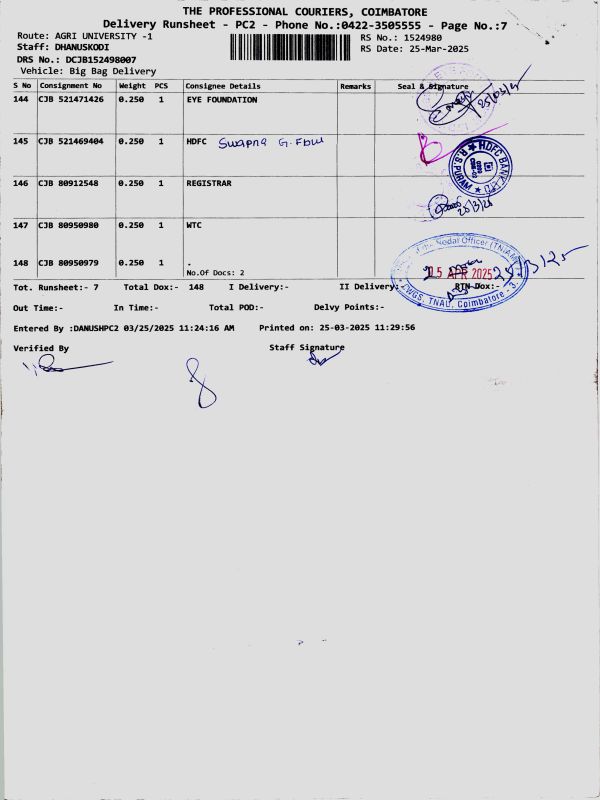 THE PROFESSIONAL COURIERS, COIMBATORE
Delivery Runsheet - PC2 - Phone No.:0422-3505555 - Page No.:7
Route: AGRI UNIVERSITY -1
RS No.: 1524980
Staff: DHANUSKODI
RS Date: 25-Mar-2025
DRS No.: DCJB152498007
Vehicle: Big Bag Delivery
S No Consignment No Weight PCS Consignee Details Remarks Seal & Signature
144 CJB 521471426 0.250 1 EYE FOUNDATION
25/03/25
145 CJB 521469404 0.250 1 HDFC Swapna G.
HDFC BANK LTD
R.S.PURAM
146 CJB 80912548 0.250 1 REGISTRAR
25/3/25
147 CJB 80950980 0.250 1 WTC
Nodal Officer (TNIAM
148 CJB 80950979 0.250 1 .
No.Of Docs: 2
APR 2025
25/3/25
WGS, TNAU, Coimbatore - 3.
Tot. Runsheet:- 7 Total Dox:- 148 I Delivery:- II Delivery:- RTN Dox:-
Out Time:- In Time:- Total POD:- Delvy Points:-
Entered By :DANUSHPC2 03/25/2025 11:24:16 AM Printed on: 25-03-2025 11:29:56
Verified By Staff Signature